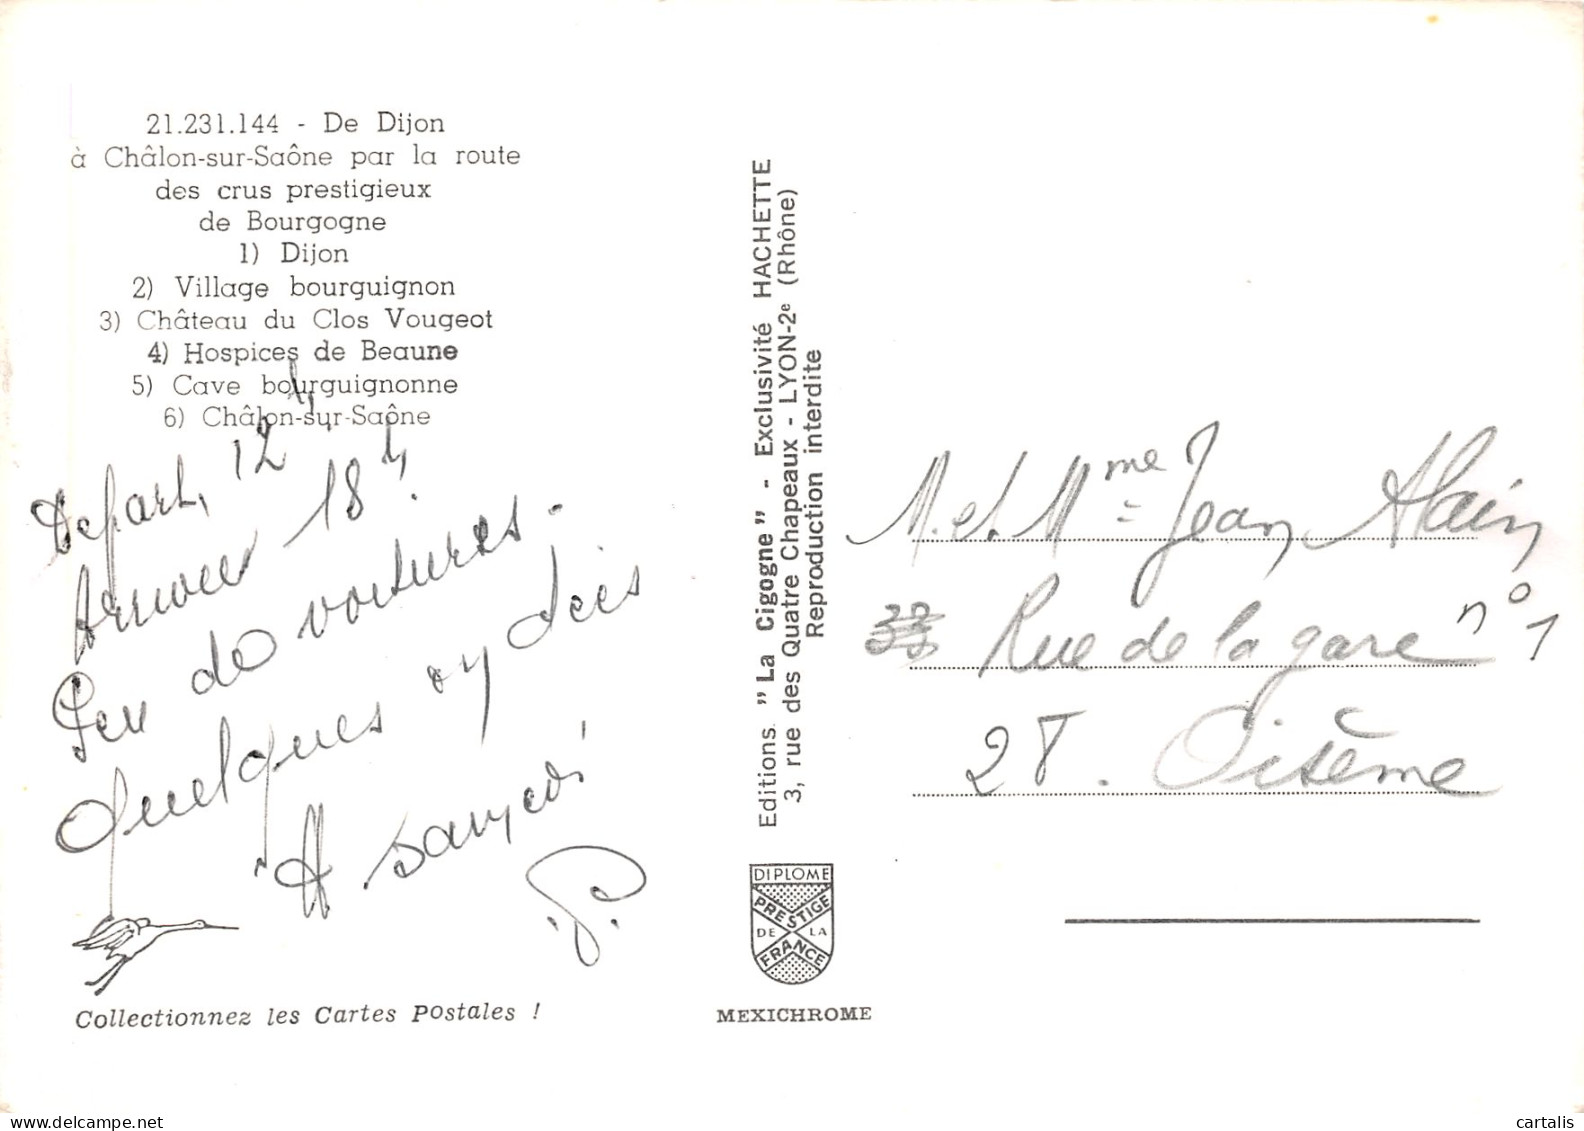 21.231.144 - De Dijon
à Châlon-sur-Saône par la route
des crus prestigieux
de Bourgogne
1) Dijon
2) Village bourguignon
3) Château du Clos Vougeot
4) Hospices de Beaune
5) Cave bourguignonne
6) Châlon-sur-Saône
Depart, 12 h
Arrivee 18 h
Peu de voitures.
Quelques
A
P.
Collectionnez les Cartes Postales !
Editions "La Cigogne" - Exclusivité HACHETTE
3, rue des Quatre Chapeaux - LYON-2e (Rhône)
Reproduction interdite
DIPLOME
PRESTIGE
DE LA
FRANCE
MEXICHROME
M. et Mme Jean Alain
Rue de la gare n° 1
28. Oisème
cartalis
www.delcampe.net